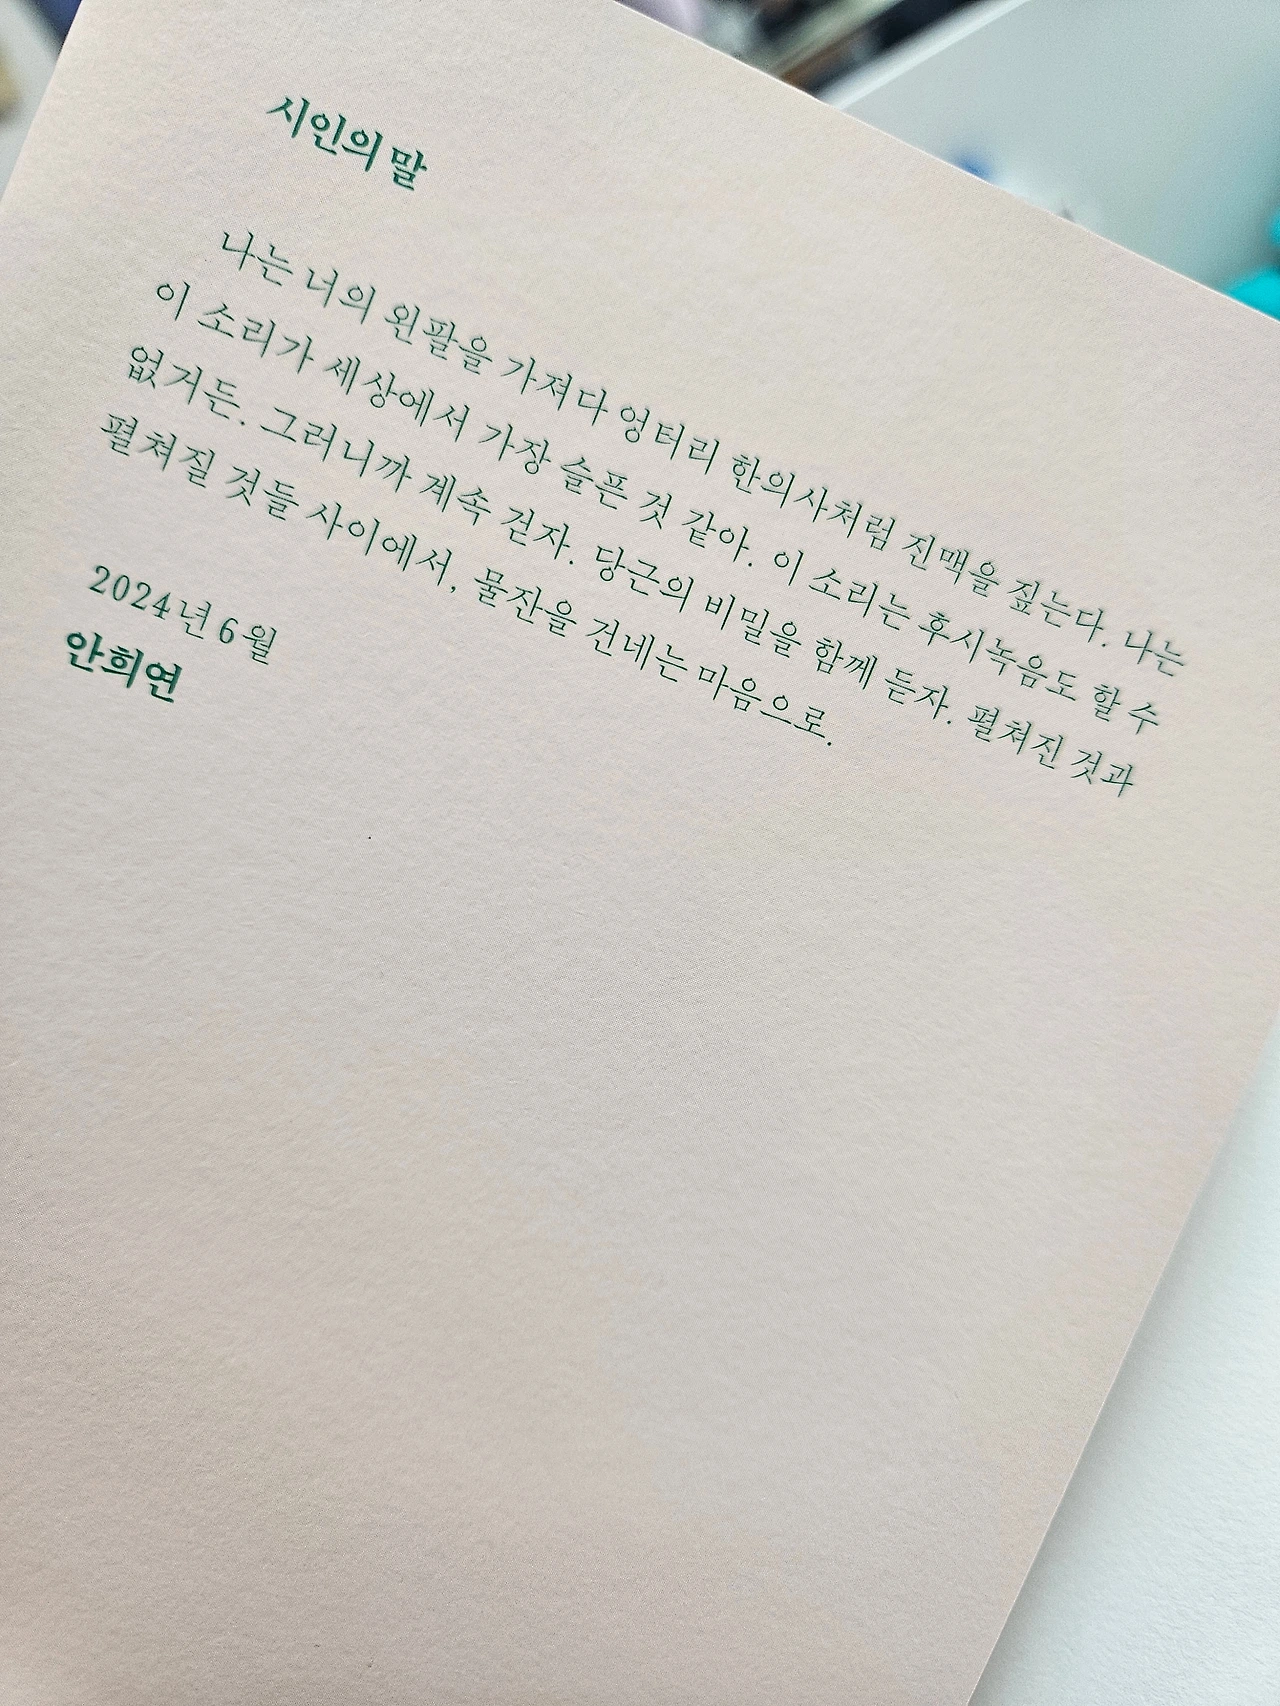 시인의 말
나는 너의 왼팔을 가져다 엉터리 한의사처럼 진맥을 짚는다. 나는
이 소리가 세상에서 가장 슬픈 것 같아. 이 소리는 후시녹음도 할 수
없거든. 그러니까 계속 걷자. 당근의 비밀을 함께 듣자. 펼쳐진 것과
펼쳐질 것들 사이에서, 물잔을 건네는 마음으로.
2024년 6월
안희연